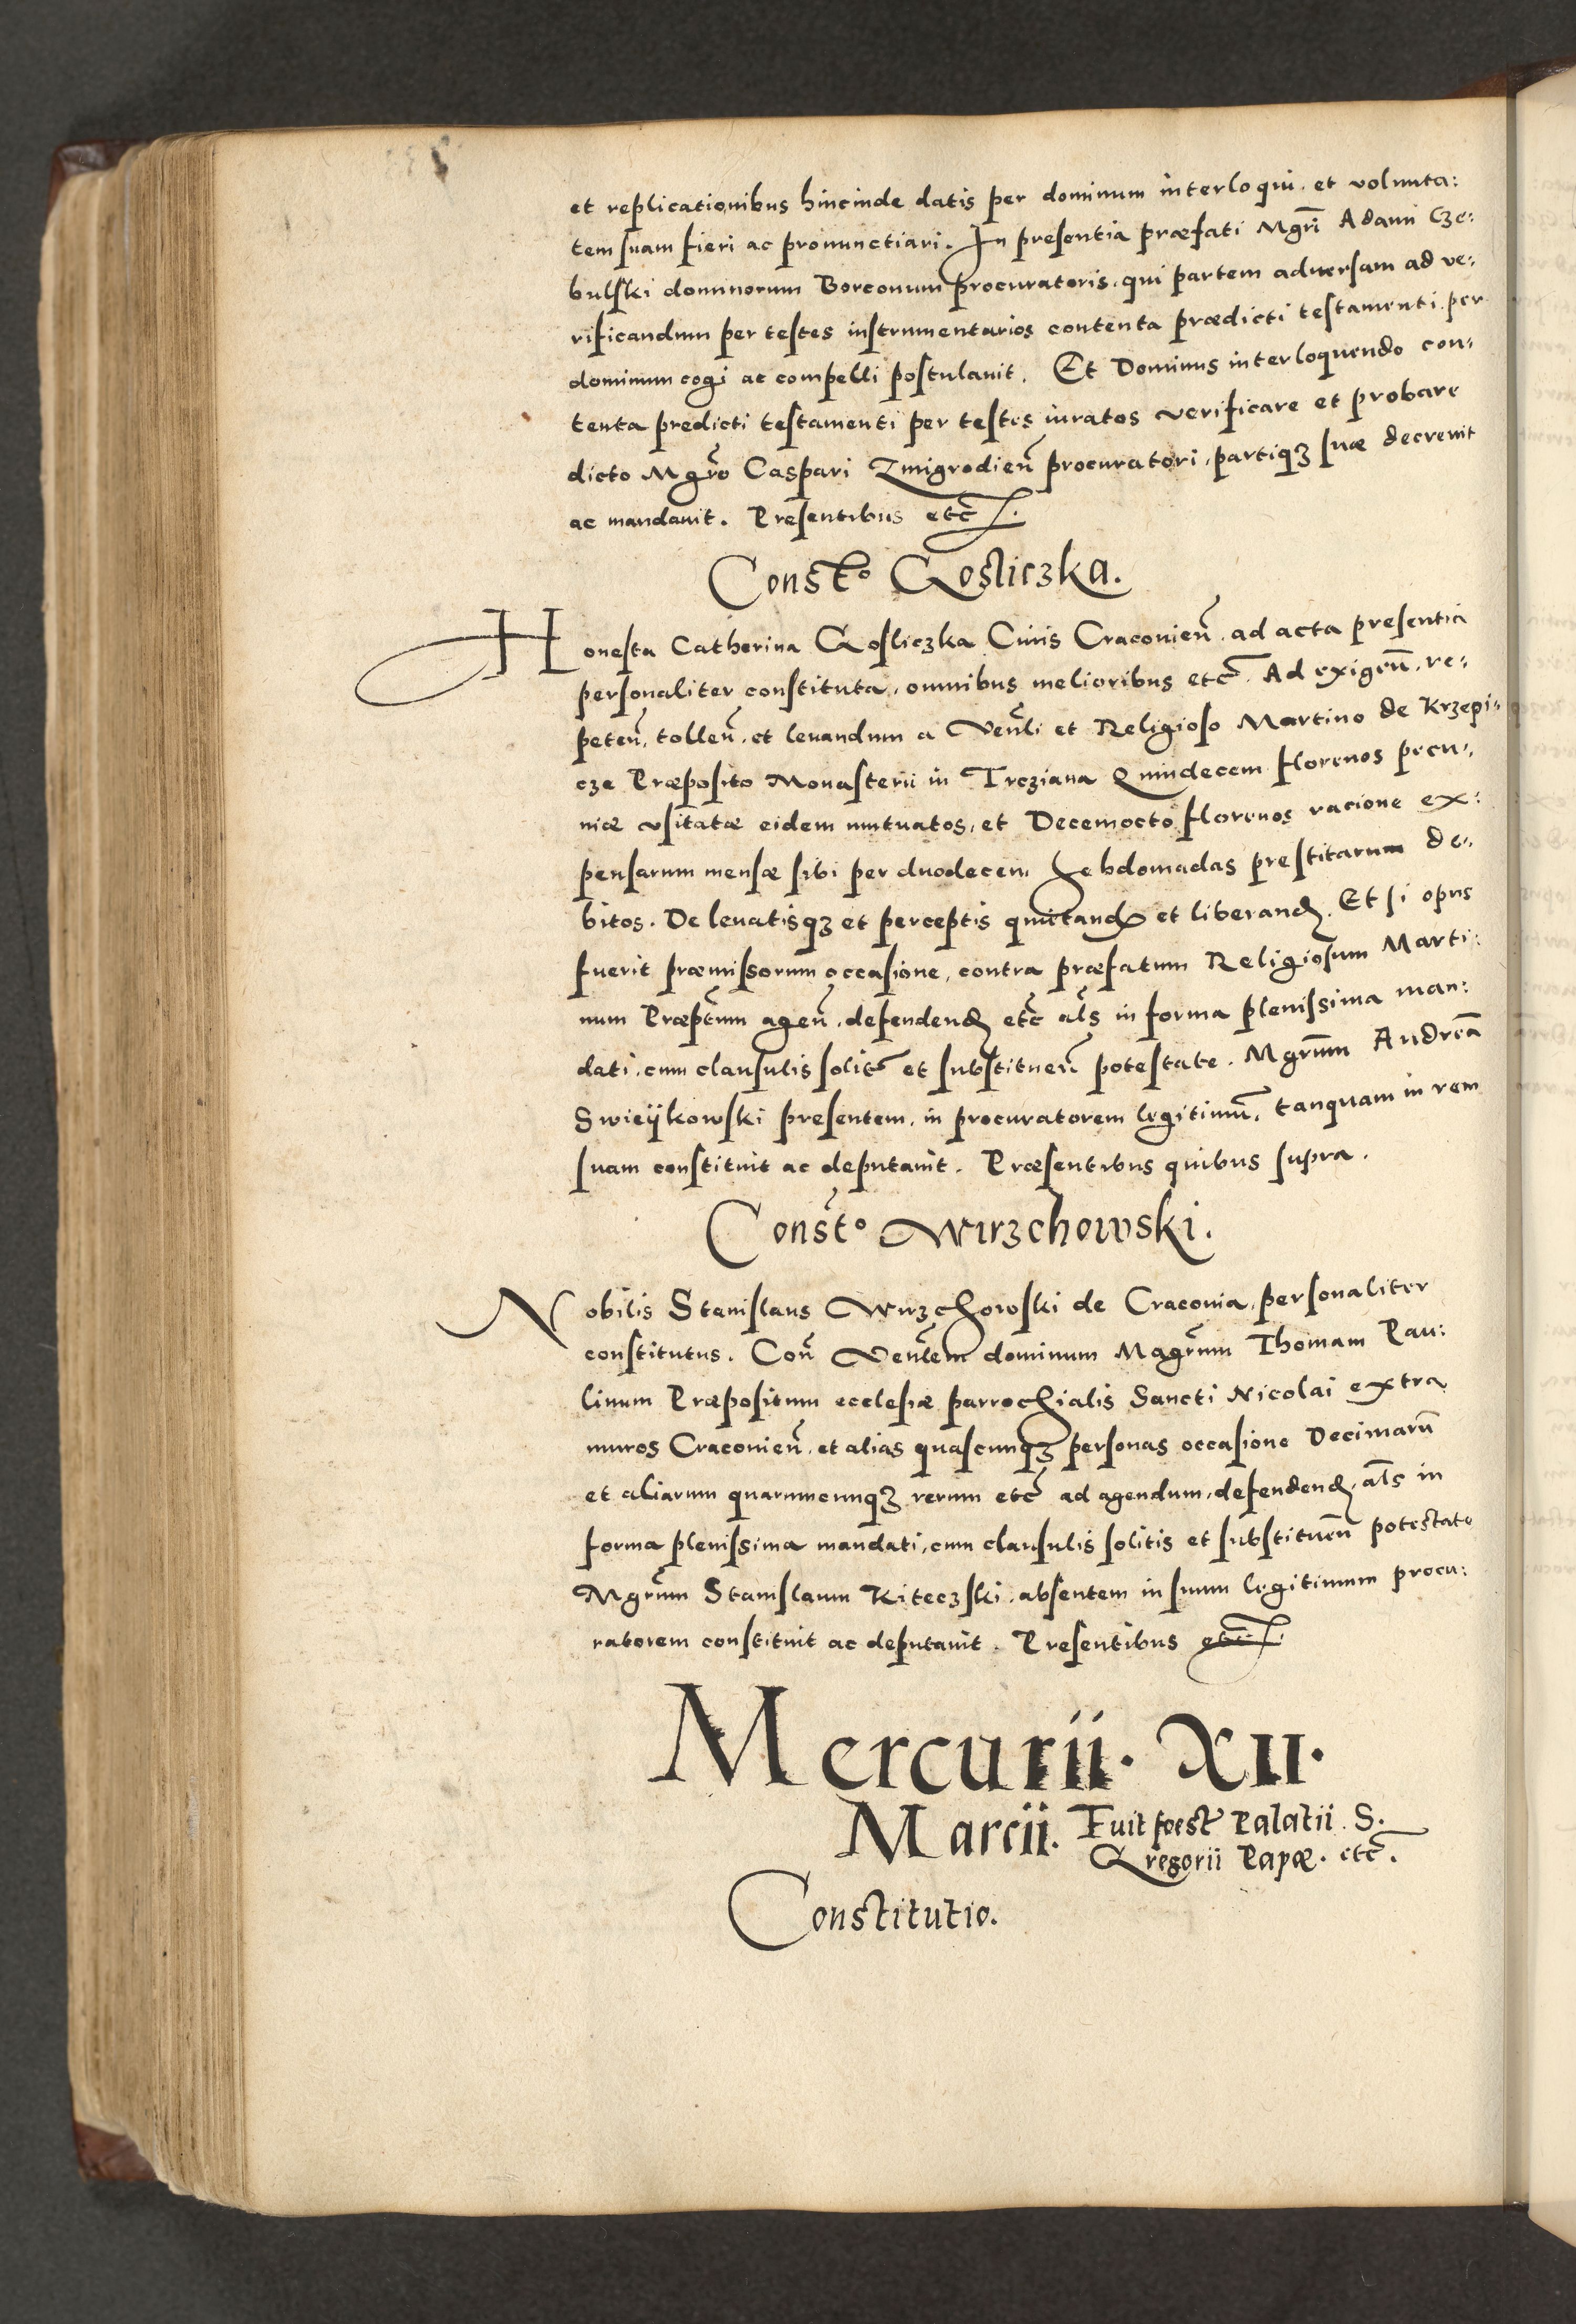 et replicationibus hincinde datis per dominum interloqui, et volunta:
tem suam fieri ac pronunctiari. In presentia præfati Mgrī Adami Cze:
bulski dominorum Borconum procuratoris, qui partem adversam ad ve:
rificandum per testes instrumentarios contenta prædicti testamenti per
dominum cogi ac compelli postulavit. Et Dominus interloquendo con:
tenta predicti testamenti per testes iuratos verificare et probare
dicto Mgrō Caspari Zmigrodień procuratori, partiqȝ suæ decrevit
ac mandavit. Presentibus etc̄
Const.º Gosliczka.
Honesta Catherina Gosliczka Civis Cracovień, ad acta presentia
personaliter constituta, omnibus melioribus etc̄. Ad exigeñ, re:
peteñ, tolleñ, et levandum a Veñli et Religioso Martino de Krzepi:
cze Præposito Monasterii in Trcziana Quindecem florenos pecu:
niæ usitatæ eidem mutuatos, et Decemocto florenos racione ex:
pensarum mensæ sibi per duodecem hebdomadas prestitarum de:
bitos. De levatisqȝ et perceptis quittand et liberand. Et si opus
fuerit præmissorum occasione, contra præfatum Religiosum Marti:
num Præptum ageñ, defendend etc̄ als in forma plenissima man:
dati, cum clausulis solit et substitueñ potestate. Mgrūm Andreā
Swieykowski presentem, in procuratorem legitimū, tanquam in rem
suam constituit ac deputavit. Præsentibus quibus supra.
Const.º Wirzchowski.
Nobilis Stanislaus Wirzchowski de Cracovia, personaliter
constitutus. Coñ Veñlem dominum Magrūm Thomam Pau:
linum Præpositum ecclesiæ parrochialis Sancti Nicolai extra
muros Cracovień, et alias quascunqȝ personas occasione Decimarū
et aliarum quarumcunqȝ rerum etc̄ ad agendum, defendend, als in
forma plenissima mandati, cum clausulis solitis et substitueñ potestate
Mgrūm Stanislaum Kiteczski, absentem in suum legitimum procu:
ratorem constituit ac deputavit. Presentibus etc̄
Mercurii. XII.
Marcii. Fuit foest Palatii. S.
Gregorii Papæ. etc̄.
Constitutio.